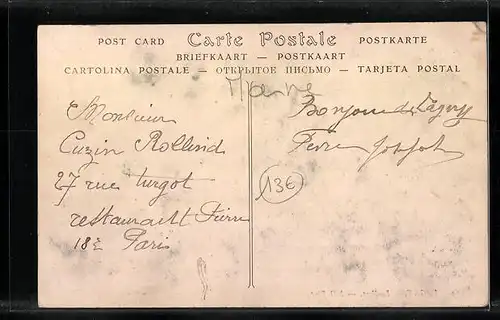 POST CARD Carte Postale POSTKARTE
BRIEFKAART — POSTKAART
CARTOLINA POSTALE — ОТКРЫТОЕ ПИСЬМО — TARJETA POSTAL
Marne
Monsieur
Cuzin Rollind
27 rue turgot
restaurant Pierre
18e Paris
Bonjour de Lagny
13€